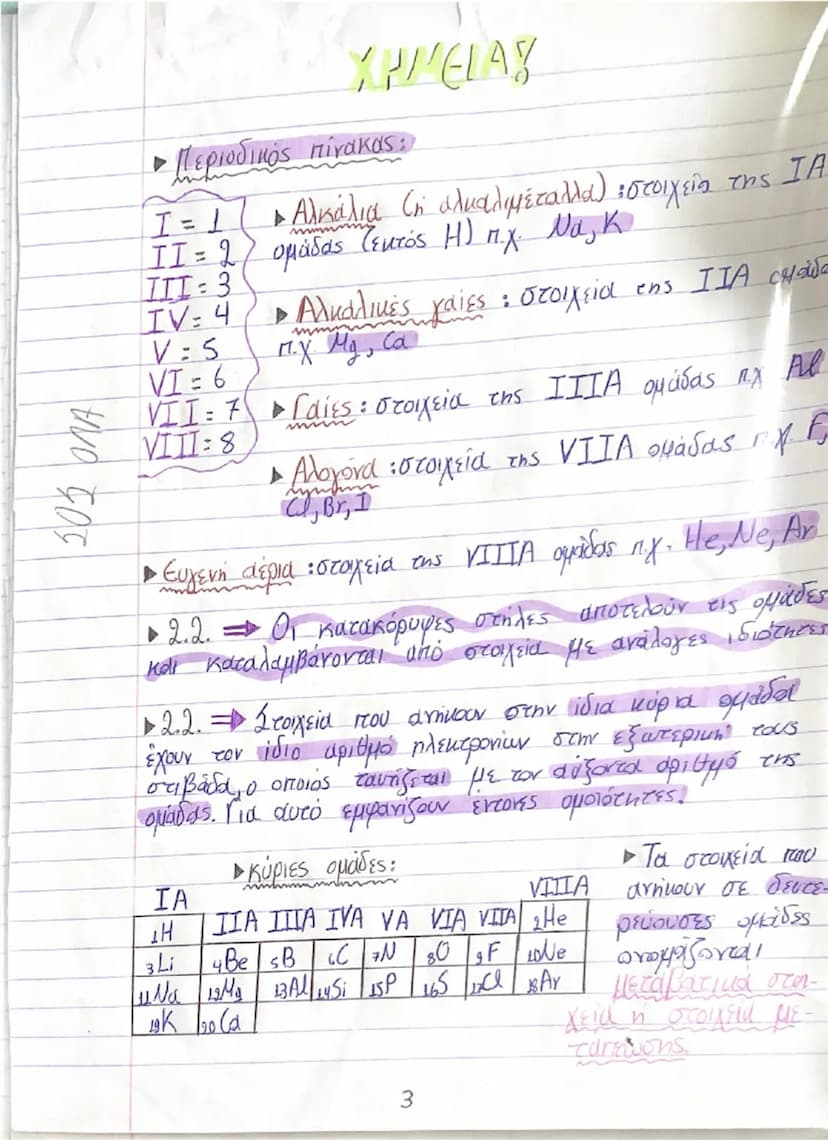 ΧΗΜΕΙΑ!
▸ Περιοδικός πίνακας:
I = 1
II = 2
III = 3
IV = 4
V = 5
VI = 6
VII = 7
VIII = 8
SOS ΟΛΑ
▸ Αλκάλια (ή αλκαλιμέταλλα) : στοιχεία της IA
ομάδας (εκτός H) π.χ. Na, K
▸ Αλκαλικές γαίες : στοιχεία της IIA ομάδα
π.χ Mg, Ca
▸ Γαίες : στοιχεία της IIIA ομάδας π.χ Al
▸ Αλογόνα : στοιχεία της VIIA ομάδας π.χ. F,
Cl, Br, I
▸ Ευγενή αέρια : στοιχεία της VIIIA ομάδας π.χ. He, Ne, Ar
▸ 2.2. ⇒ Οι κατακόρυφες στήλες αποτελούν τις ομάδες
και καταλαμβάνονται από στοιχεία με ανάλογες ιδιότητες
▸ 2.2. ⇒ Στοιχεία που ανήκουν στην ίδια κύρια ομάδα
έχουν τον ίδιο αριθμό ηλεκτρονίων στην εξωτερική τους
στιβάδα, ο οποίος ταυτίζεται με τον αύξοντα αριθμό της
ομάδας. Για αυτό εμφανίζουν έντονες ομοιότητες.
▸ Κύριες ομάδες:
IA VIIIA
1H IIA IIIA IVA VA VIA VIIA 2He
3Li 4Be 5B 6C 7N 8O 9F 10Ne
11Na 12Mg 13Al 14Si 15P 16S 17Cl 18Ar
19K 20Ca
▸ Τα στοιχεία που
ανήκουν σε δευτε-
ρεύουσες ομάδες
ονομάζονται
μεταβατικά στοι-
χεία ή στοιχεία με-
τάπτωσης.
3